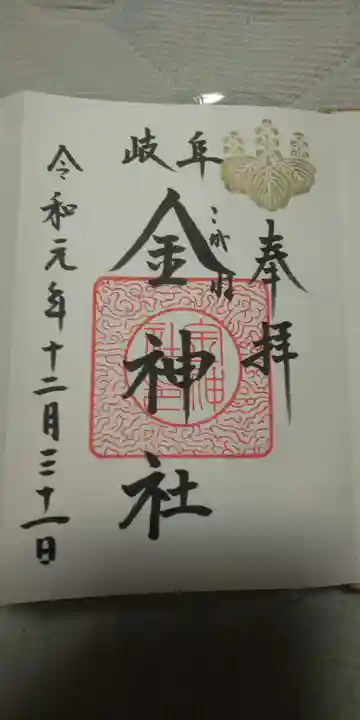 奉拝
岐阜
金神社
こがね
令和元年十二月三十一日